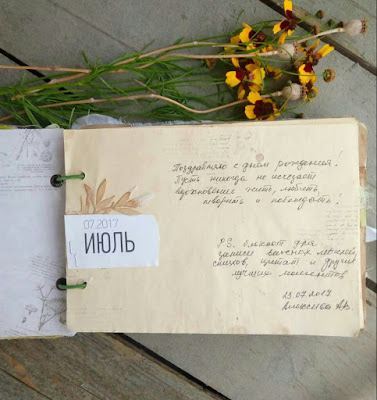 Поздравляю с днём рождения!
Пусть никогда не исчезает
вдохновение жить, любить,
творить и побеждать!
P.S. Блокнот для
записи важных мыслей,
стихов, цитат и других
лучших моментов
07.2017
ИЮЛЬ
23.07.2019